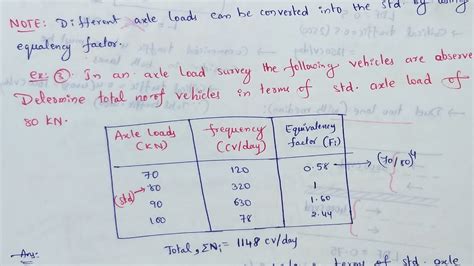 NOTE: Different axle loads can be converted into the std by using
equalency factor.
ex: ⑧ In an axle load survey the following vehicles are observe
Deteremine total no of vehicles in terms of std. axle load of
80 KN.
Axle Loads (KN) frequency (cv/day) Equivalency factor (Fi)
70 120 0.58 → (70/80)^4
(std) → 80 320 1
90 630 1.60
100 78 2.44
Total, ΣNi = 1148 cv/day
Ans: terms of std. axle